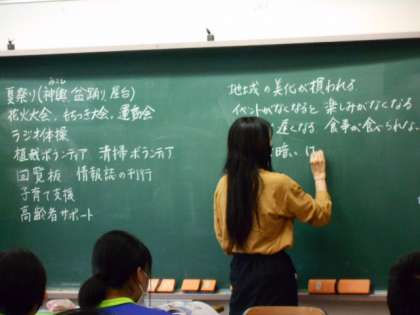 みこし
夏祭り(神輿 盆踊り 屋台)
花火大会、もちつき大会、運動会
ラジオ体操
植栽ボランティア 清掃ボランティア
回覧板 情報誌の刊行
子育て支援
高齢者サポート
地域の美化が損われる
イベントがなくなると 楽しみがなくなる
遅くなる 食事が食べられな
暗い